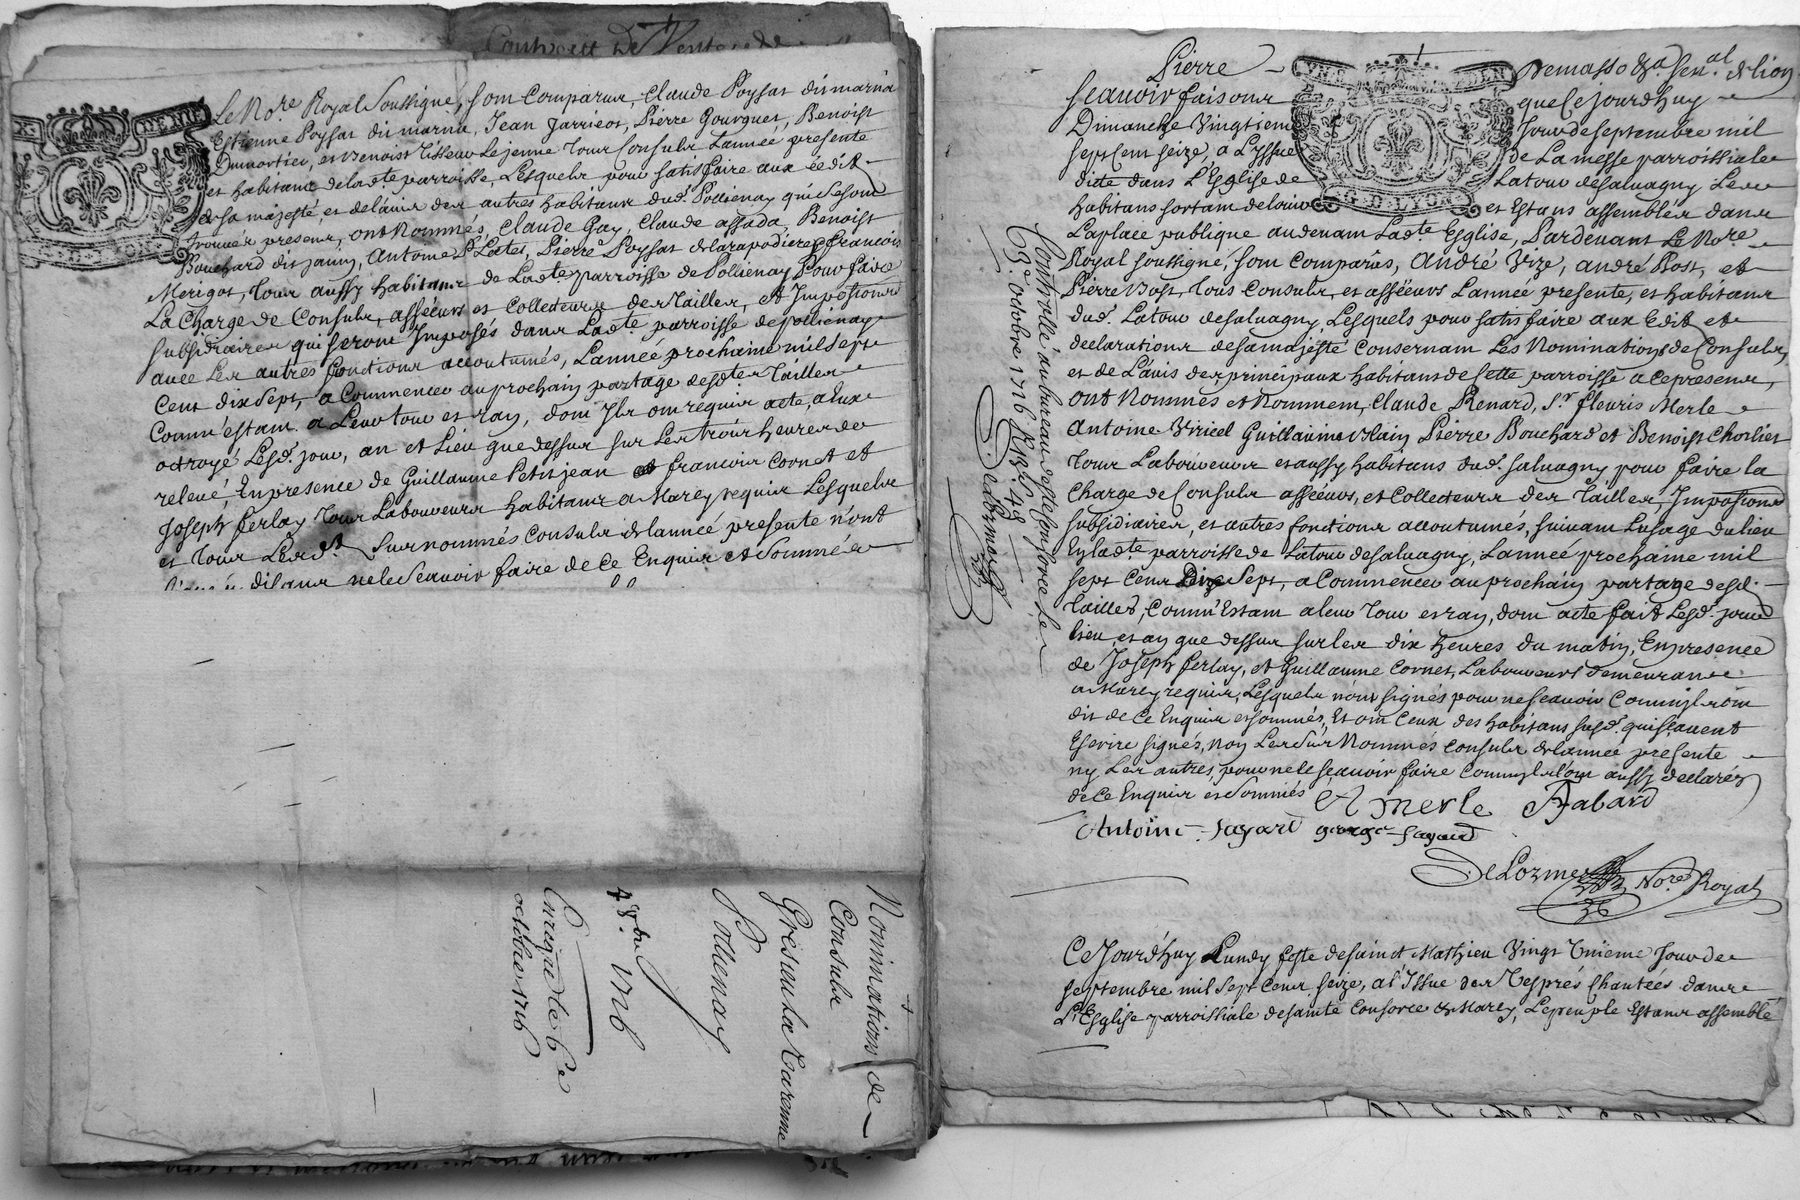 Contract de Vente
Le No.re Royal Soussigné, sont Comparus, Claude Poyssat dit marna
Estienne Poyssat dit marna, Jean Jarricot, Pierre Gourguet, Benoist
Dumortier, et Benoist Tisseur Lejeune Tous Consuls L'année presente
et habitans delad.te parroisse, Lesquels pour satisfaire aux éédit
de sa majesté et de l'avis des autres habitans dud. Pollienay qui se sont
trouvés presens, ont Nommés, Claude Gay, Claude assada, Benoist
Bouchard dit Janin, Antoine Lates, Pierre Poyssat de larapodiere, francois
Merigot, Tous aussy habitans de Lad.te parroisse de Pollienay Pour faire
La Charge de Consuls, asséeurs et Collecteurs des Tailles, et Impositions
subsidiaires qui seront Imposés dans Lad.te parroisse de pollienay
avec Les autres fonctions accoutumés, L'année prochaine mil sept
Cent dix sept, a Commencer au prochain partage desd.tes Tailles
Comm'estant a Leur tour et rang, dont Ils ont requis acte, a Eux
octroyé Lesd. jour, an et Lieu que dessus sur Les trois heures de
relevé, En presence de Guillaume Petitjean et francois Cornet et
Joseph ferlay Tous Laboureurs habitans a Marcy requis Lesquels
et Tous Lesd.ts Surnommés Consuls de lannée presente n'ont
signé, disans ne le Scavoir faire de Ce Enquis et Sommées
Nominations de
Consuls
Gresieu la Varenne
Pollienay
4 8bre 1716
Enreg.re le 6e
octobre 1716
Pierre Demasso &a. Sen.al de lion
Scavoir faisons que Cejourdhuy
Dimanche Vingtiem Jour de septembre mil
sept Cent seize, a L'Issue de La messe parroissiale
dite dans L'Eglise de Latour desalvagny Les
habitans sortant de loire et Estans assemblés dans
Laplace publique audevant Lad.te Eglise, Pardevant Le No.re
Royal soussigné, sont Comparûs, André Vize, andré Rost, et
Pierre Vost, Tous Consuls, et asséeurs L'année presente, et habitans
dud. Latour desalvagny, Lesquels pour satisfaire aux Edit et
declarations desamajesté Consernant Les Nominations de Consuls,
et de L'avis des principaux habitans de Cette parroisse a Cepresens,
ont Nommés et Nomment, Claude Renard, S.r fleuris Merle
Antoine Viricel Guillaume Pierre Bouchard et Benoist Chorlier
Tous Laboureurs et aussy habitans dud. salvagny pour faire la
Charge de Consuls asséeurs, et Collecteurs des Tailles, Impositions
subsidiaires, et autres fonctions accoutumés, suivant Lusage du lieu
En lad.te parroisse de Latour desalvagny, L'année prochaine mil
sept Cent Dix Sept, a Commencer au prochain partage desd.
Tailles, Comm'Estant a leur Tour et rang, dont acte fait Lesd. jour
lieu, et an que dessus sur les dix heures du matin, En presence
de Joseph ferlay, et Guillaume Cornet, Laboureurs demeurans
a Marcy requis, Lesquels n'ont signés pour ne scavoir Comm'ils ont
dit de Ce Enquis et Sommés, Et ont Ceux des habitans susd. qui scavent
Escrire signés, non Les Sus Nommés Consuls de lannée presente
ny Les autres, pour ne le scavoir faire Comm'ils l'ont aussy declarés
de Ce Enquis et Sommés A merle A Rabard
Antoine fayard george fayard
De Lorme No.re Royal
Controllé au bureau de Ste Consorce, le
3e octobre 1716
Delorme
Ce Jourd'huy Lundy feste de Sainct Mathieu Vingt Unieme Jour de
septembre mil sept Cent seize, a l'Issue des Vespres Chantées dans
L'Eglise parroissiale de sainte Consorce de Marcy, Le peuple Estant assemblé